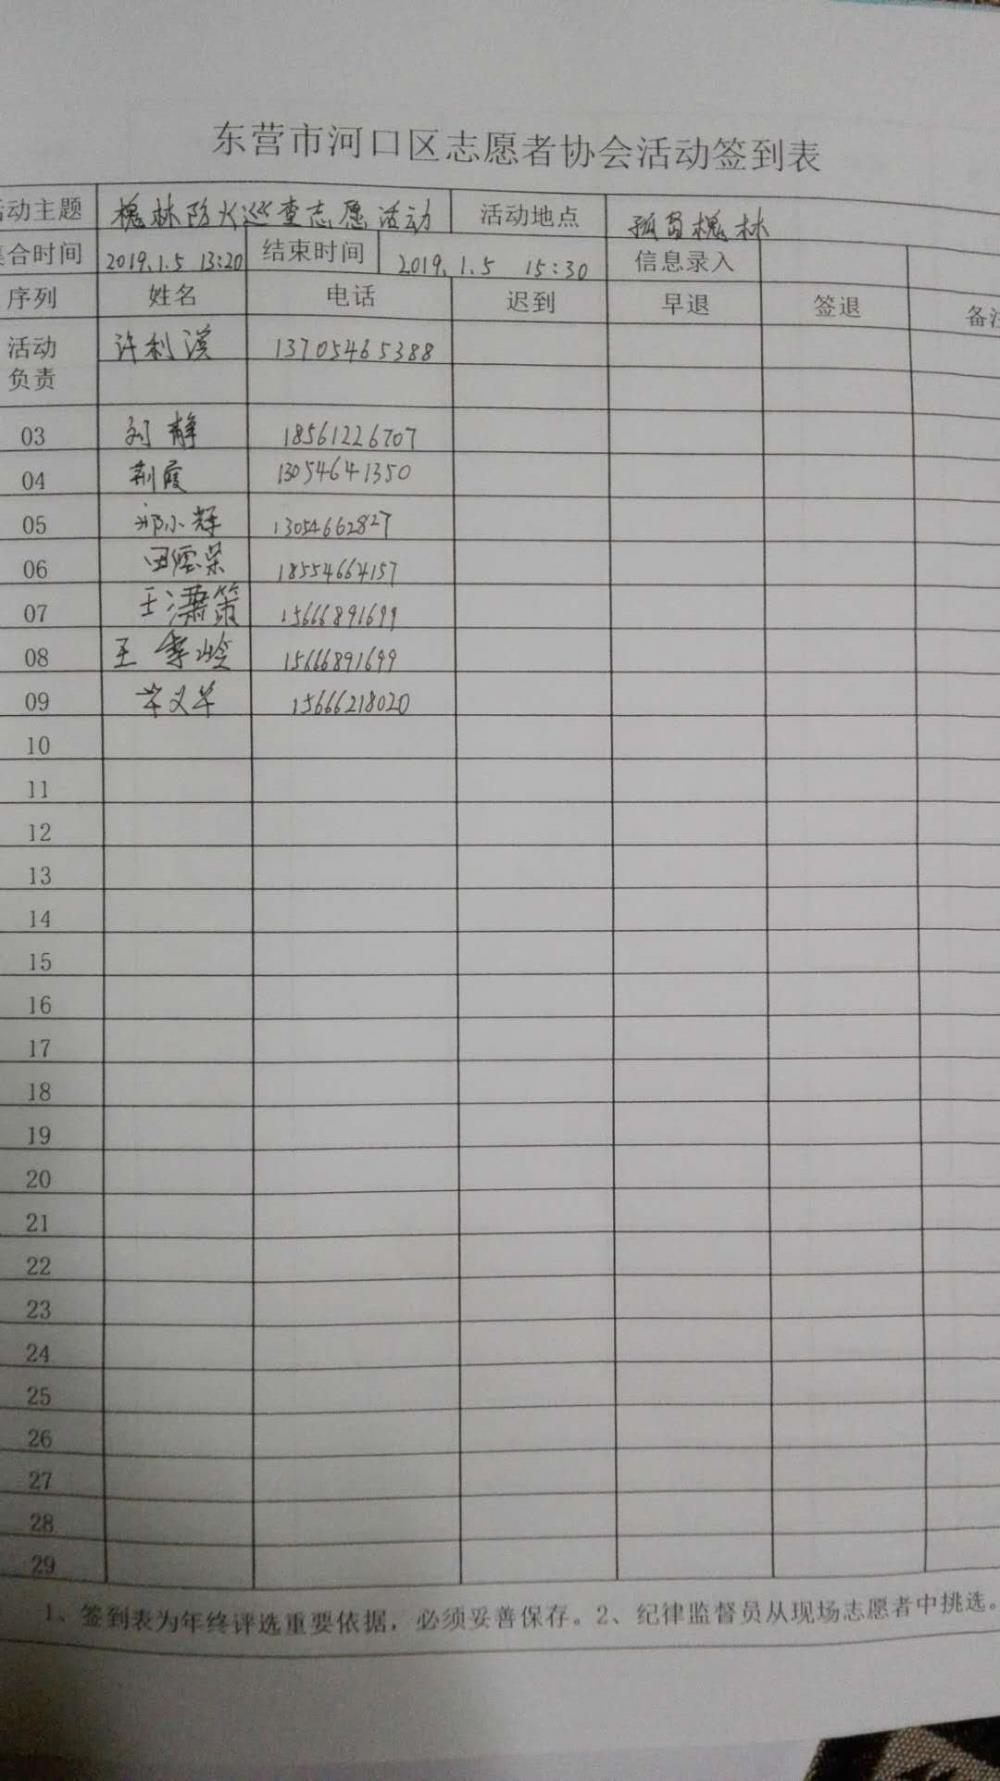 东营市河口区志愿者协会活动签到表
活动主题 槐林防火巡查志愿活动 活动地点 孤岛槐林
集合时间 2019.1.5 13:20 结束时间 2019.1.5 15:30 信息录入
序列 姓名 电话 迟到 早退 签退 备注
活动 许利滨 13705465388
负责
03 刘静 18561226707
04 荆霞 13054641350
05 祁小辉 13054662827
06 田雪荣 18554664157
07 王潇策 15666891699
08 王 15666891699
09 毕义军 15666218020
10
11
12
13
14
15
16
17
18
19
20
21
22
23
24
25
26
27
28
29
1、签到表为年终评选重要依据，必须妥善保存。2、纪律监督员从现场志愿者中挑选。